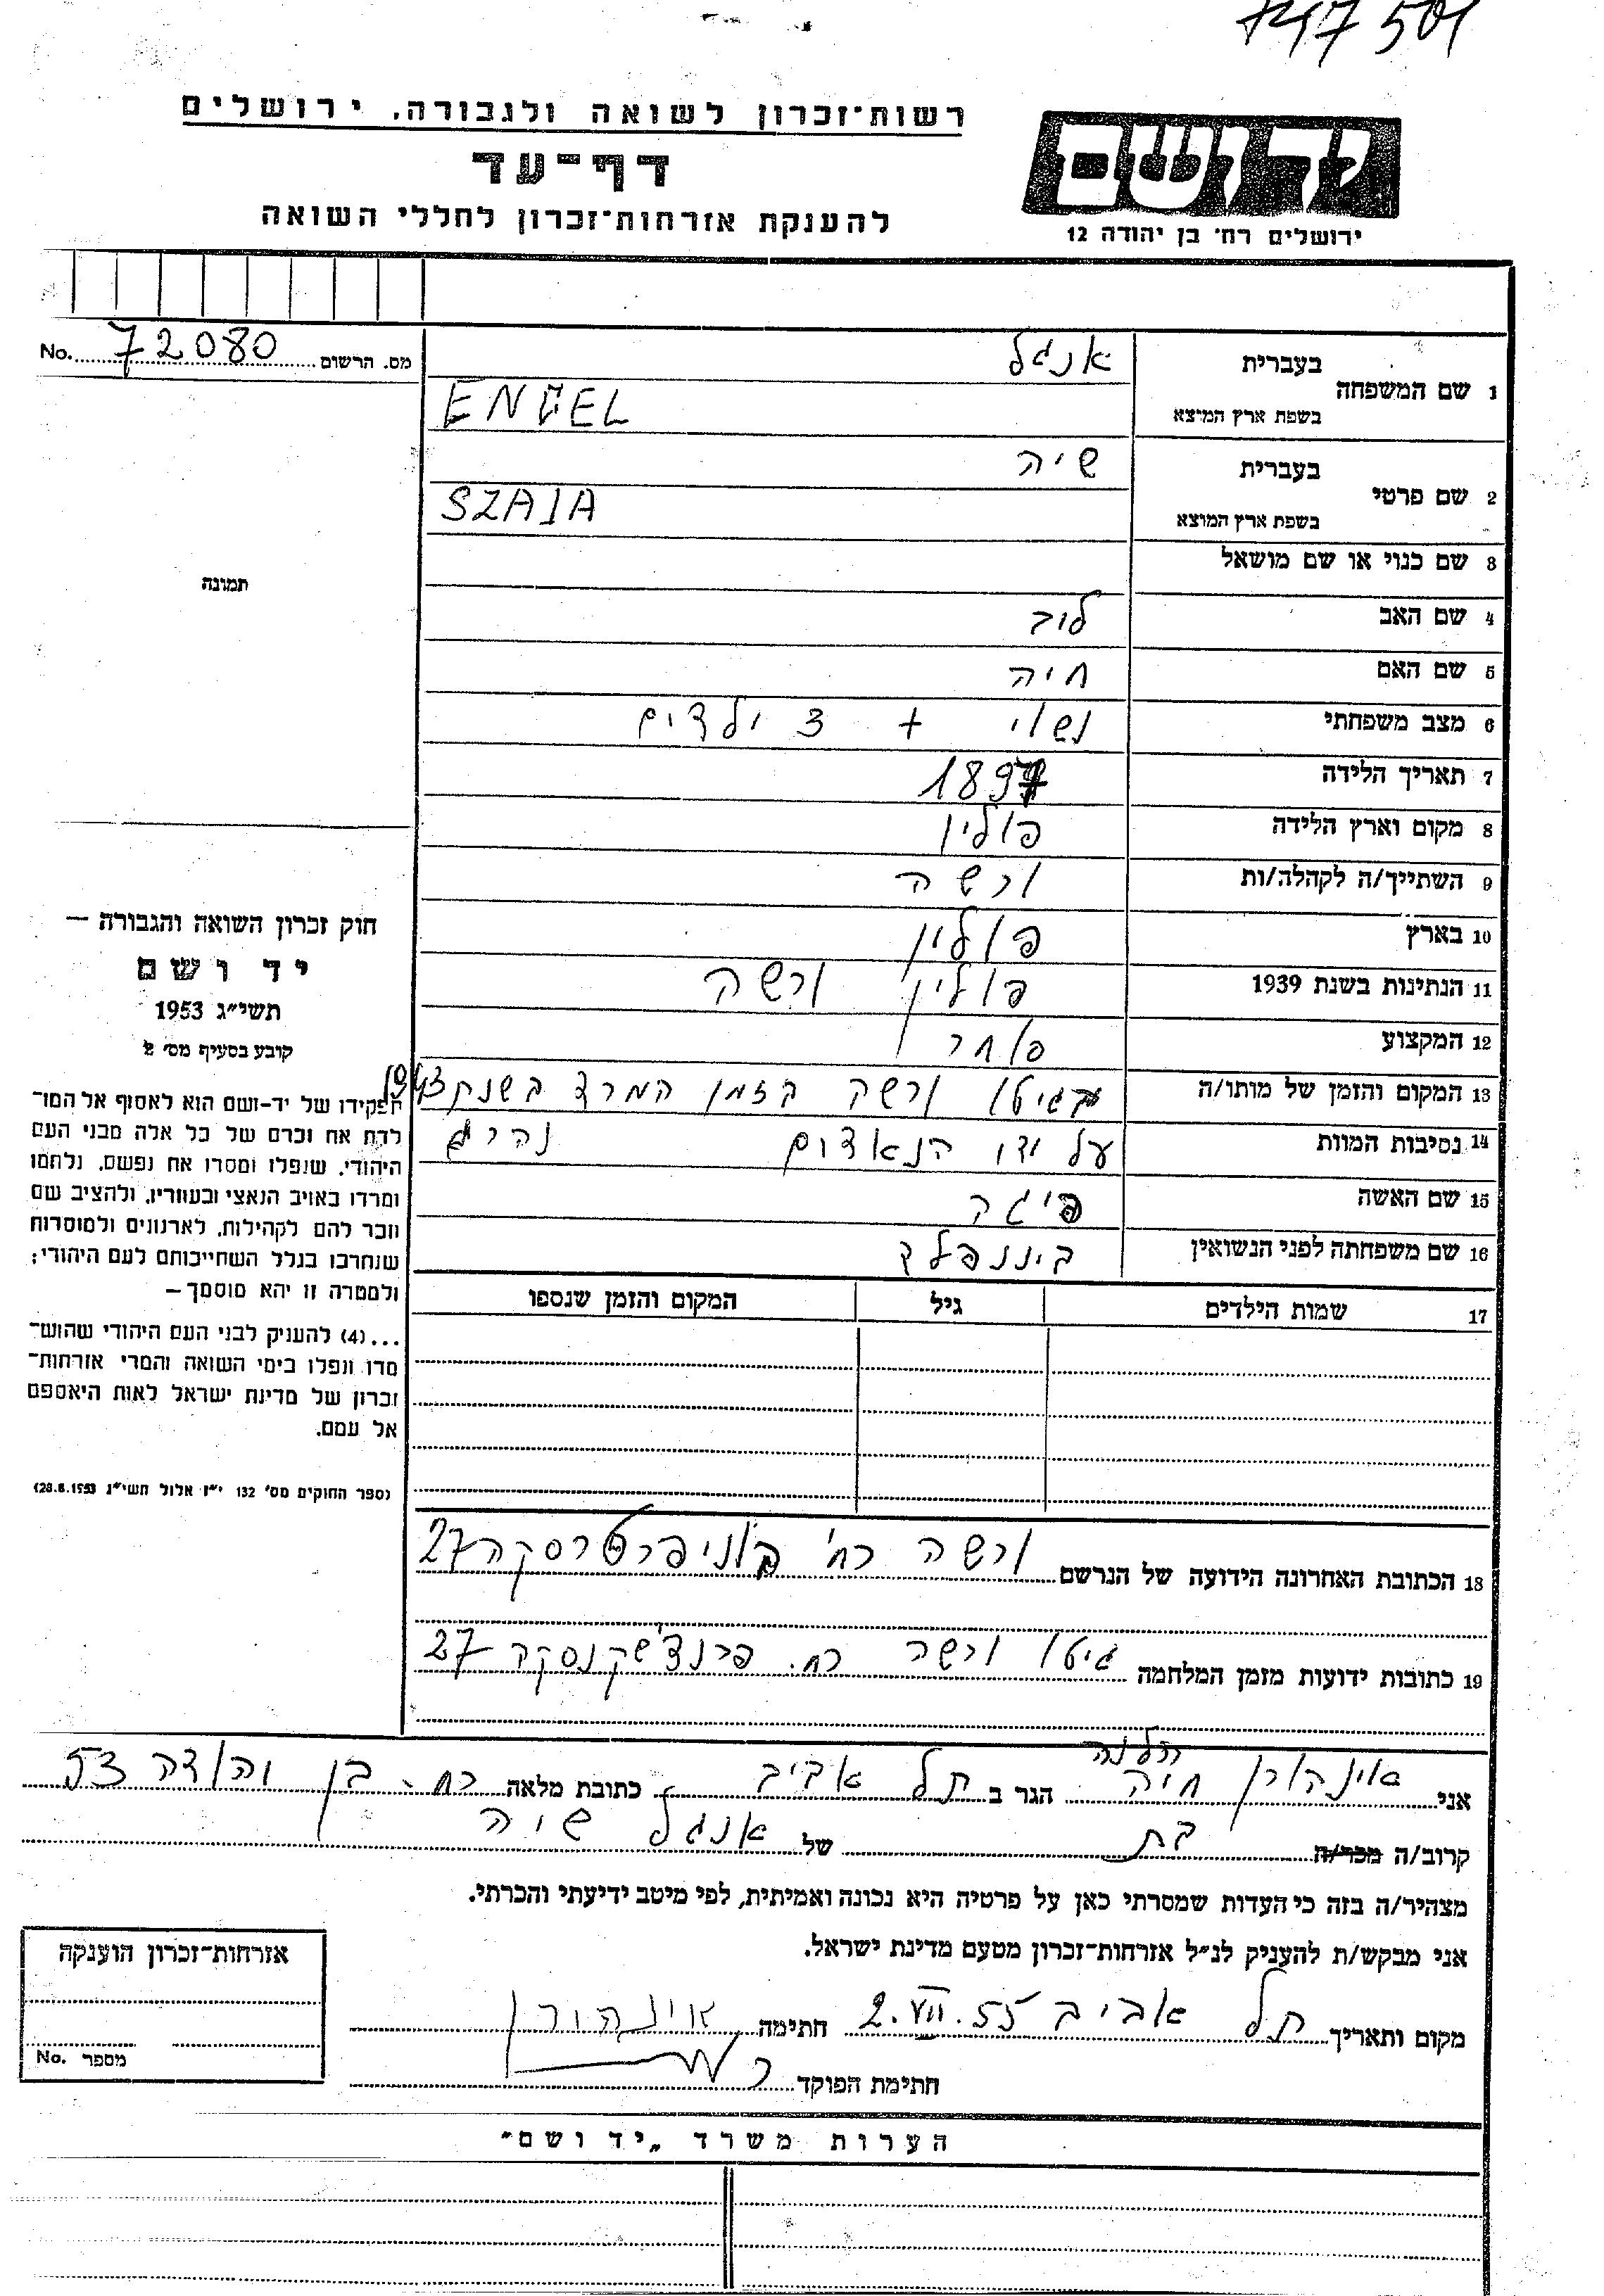 747501
רשות־זכרון לשואה ולגבורה, ירושלים
דף־עד
להענקת אזרחות־זכרון לחללי השואה
יד ושם
ירושלים רח׳ בן יהודה 12
מס. הרשום 72080 No.
1 שם המשפחה
בעברית אנגל
בשפת ארץ המוצא ENGEL
2 שם פרטי
בעברית שיה
בשפת ארץ המוצא SZAJA
3 שם כנוי או שם מושאל
4 שם האב לוב
5 שם האם חיה
6 מצב משפחתי נשוי + 3 ילדים
7 תאריך הלידה 1897
8 מקום וארץ הלידה פולין
9 השתייך/ה לקהלה/ות ורשה
10 בארץ פולין
11 הנתינות בשנת 1939 פולין ורשה
12 המקצוע
13 המקום והזמן של מותו/ה בגיטו ורשה בזמן המרד בשנת
14 נסיבות המוות על ידי הנאצים נהרג
15 שם האשה פיגה
16 שם משפחתה לפני הנשואין ביננפלד
17 שמות הילדים גיל המקום והזמן שנספו
18 הכתובת האחרונה הידועה של הנרשם ורשה רח׳ 27
19 כתובות ידועות מזמן המלחמה גיטו ורשה רח. פרנצ׳שקנסקה 27
תמונה
חוק זכרון השואה והגבורה —
יד ושם
תשי״ג 1953
קובע בסעיף מס׳ 2
תפקידו של יד-ושם הוא לאסוף אל המו־
לדת את זכרם של כל אלה מבני העם
היהודי, שנפלו ומסרו את נפשם, נלחמו
ומרדו באויב הנאצי ובעוזריו, ולהציב שם
וזכר להם לקהילות, לארגונים ולמוסדות
שנחרבו בגלל השתייכותם לעם היהודי;
ולמטרה זו יהא מוסמך —
...(4) להעניק לבני העם היהודי שהוש־
מדו ונפלו בימי השואה והמרי אזרחות־
זכרון של מדינת ישראל לאות היאספם
אל עמם.
(ספר החוקים מס׳ 132 י״ז אלול תשי״ג 28.8.1953)
הלנה
אני אינהורן חיה הגר ב תל אביב כתובת מלאה רח. בן יהודה 53
קרוב/ה מכר/ה בת של אנגל שיה
מצהיר/ה בזה כי העדות שמסרתי כאן על פרטיה היא נכונה ואמיתית, לפי מיטב ידיעתי והכרתי.
אני מבקש/ת להעניק לנ״ל אזרחות־זכרון מטעם מדינת ישראל.
מקום ותאריך תל אביב 2.VII.55 חתימה אינהורן
חתימת הפוקד
אזרחות־זכרון הוענקה
מספר No.
הערות משרד „יד ושם״